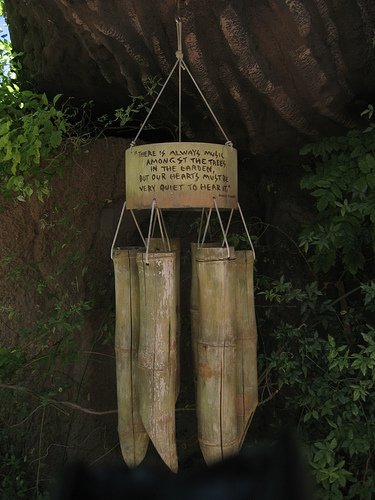 "THERE IS ALWAYS MUSIC
AMONGST THE TREES
IN THE GARDEN,
BUT OUR HEARTS MUST BE
VERY QUIET TO HEAR IT."